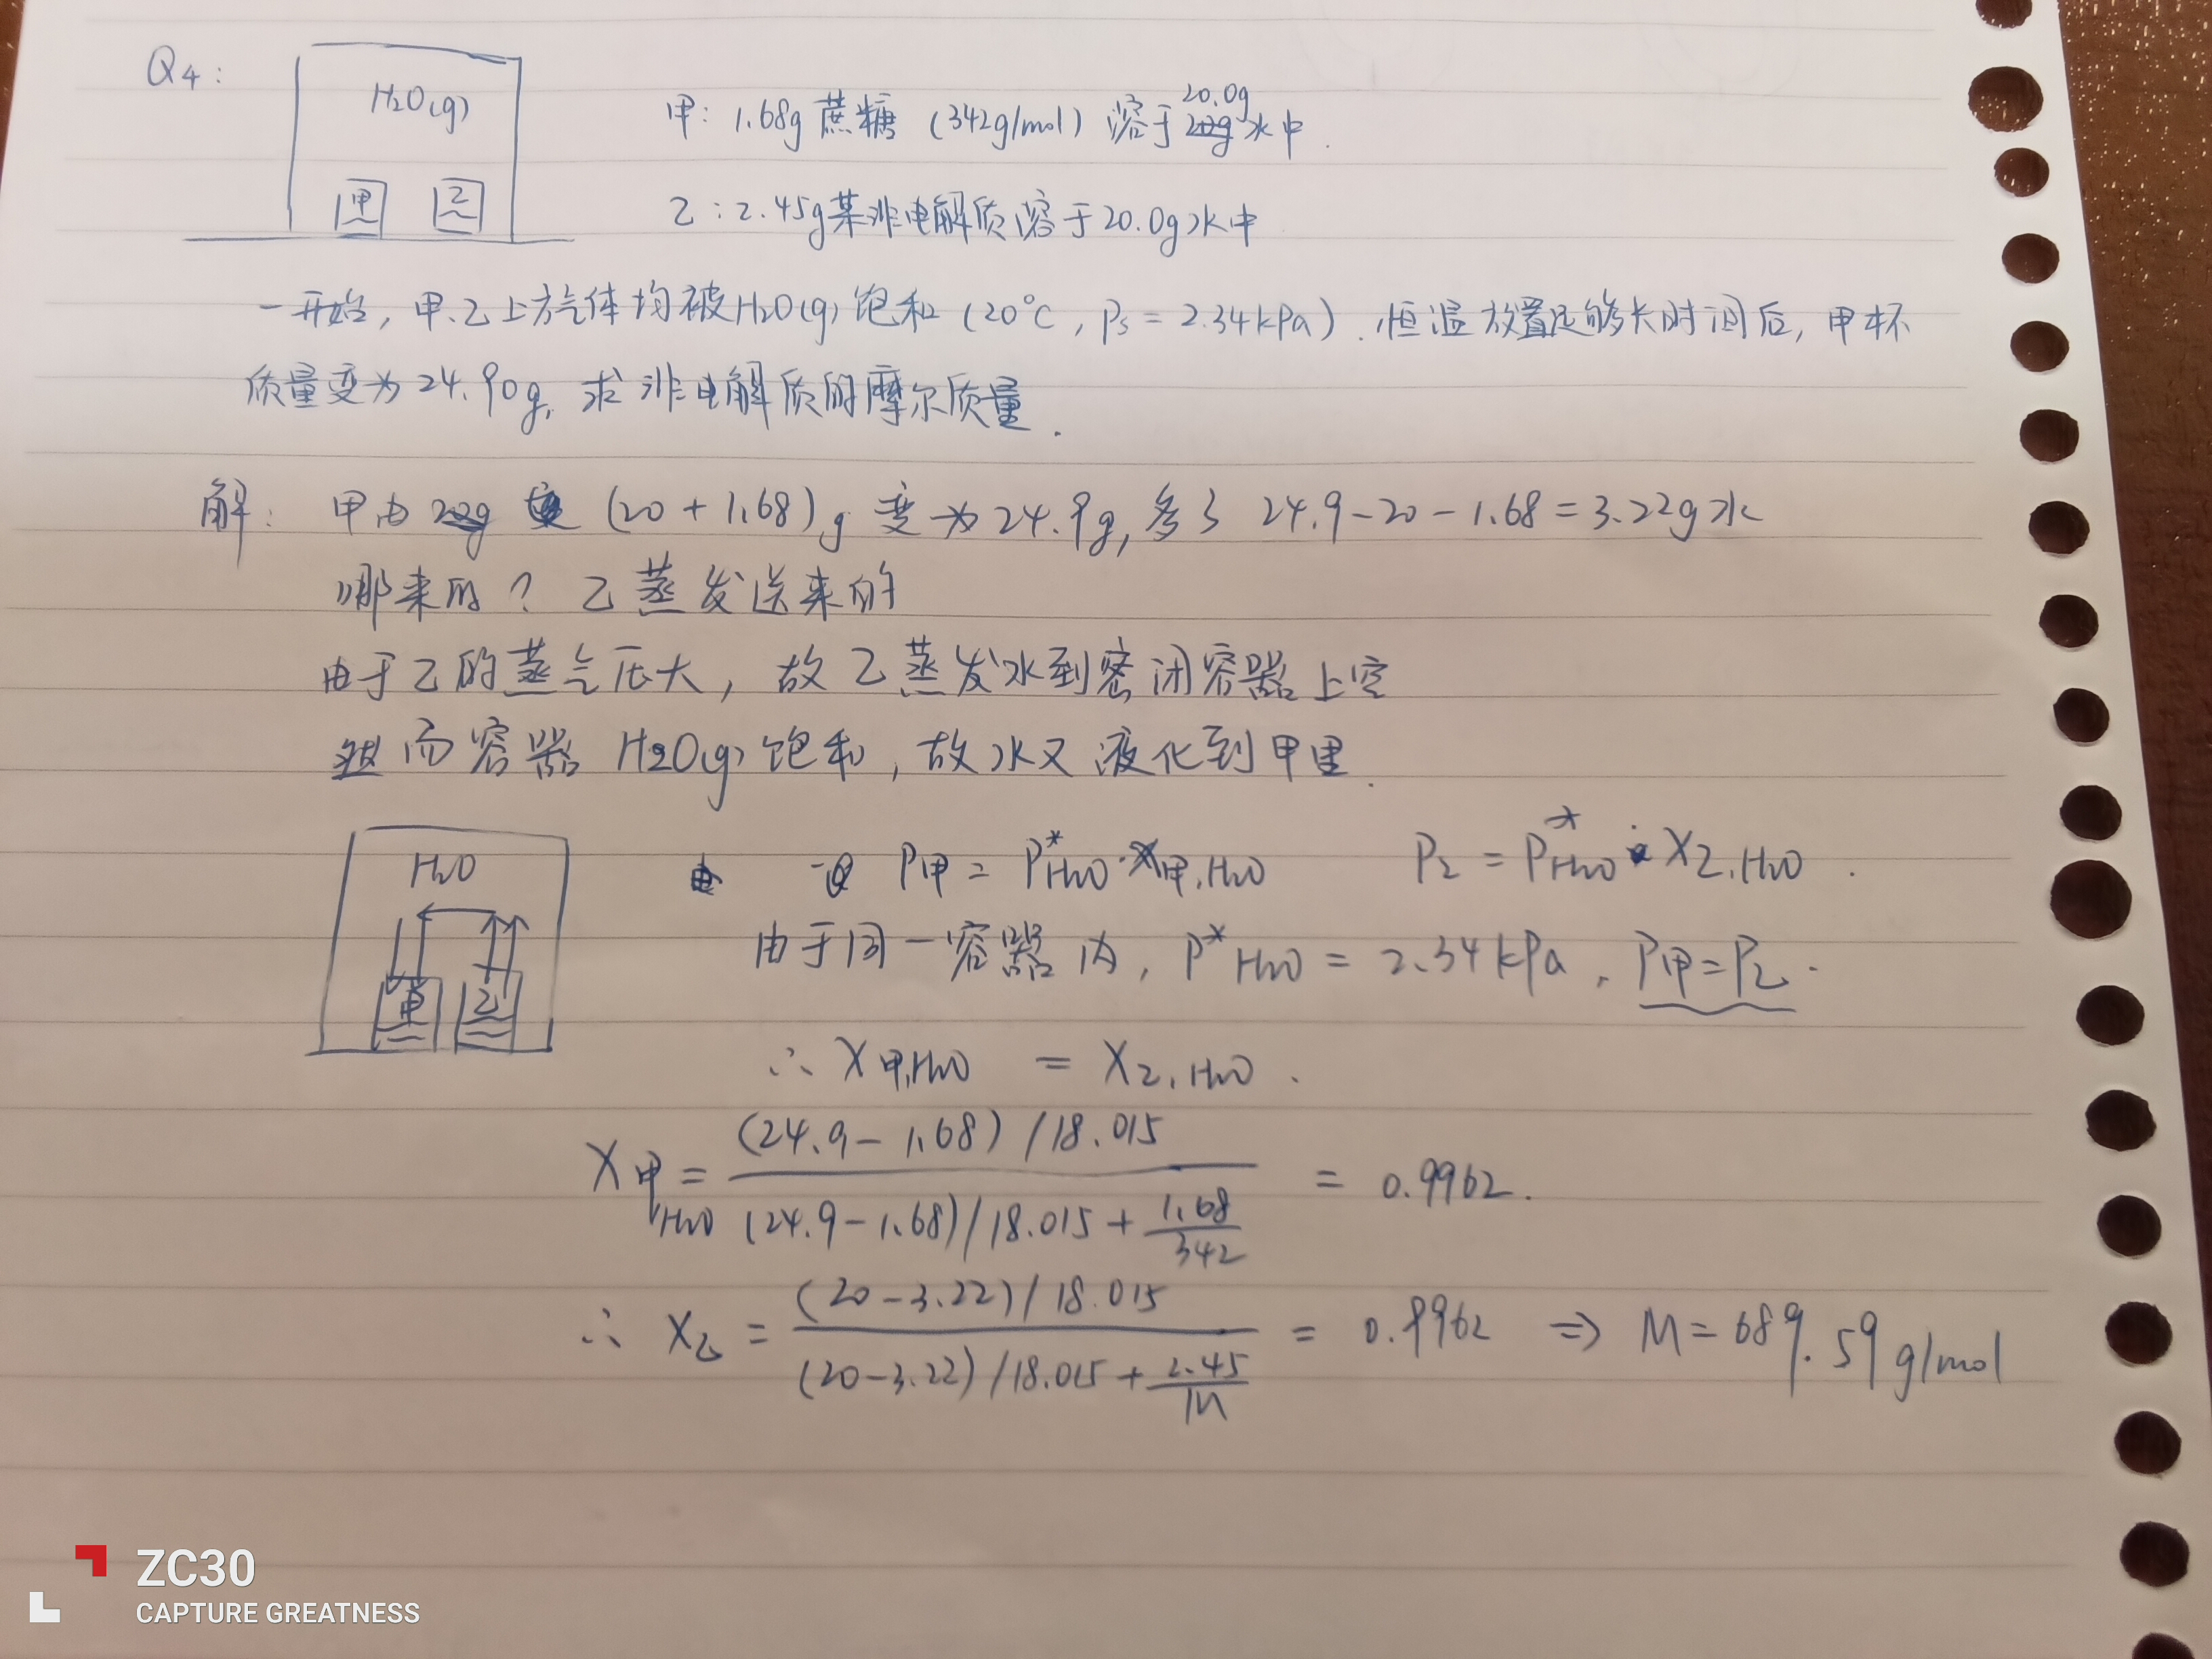 Q4:
H₂O(g)
甲 乙
甲: 1.68g 蔗糖 (342g/mol) 溶于 20.0g 水中.
乙: 2.45g某非电解质溶于20.0g水中
一开始, 甲、乙上方气体均被H₂O(g)饱和 (20°C, Ps = 2.34kPa). 恒温放置足够长时间后, 甲杯
质量变为24.90g, 求非电解质的摩尔质量.
解: 甲由 (20+1.68)g 变为24.9g, 多了 24.9-20-1.68=3.22g水
哪来的? 乙蒸发送来的
由于乙的蒸气压大, 故乙蒸发水到密闭容器上空
然而容器 H₂O(g)饱和, 故水又液化到甲里.
H₂O
甲 乙
设 P甲 = P*H₂O·X甲,H₂O P乙 = P*H₂O·X乙,H₂O.
由于同一容器内, P*H₂O = 2.34kPa, P甲=P乙.
∴ X甲,H₂O = X乙,H₂O.
X甲,H₂O = (24.9-1.68)/18.015 / (24.9-1.68)/18.015 + 1.68/342 = 0.9962.
∴ X乙 = (20-3.22)/18.015 / (20-3.22)/18.015 + 2.45/M = 0.9962 ⇒ M=689.59g/mol
ZC30
CAPTURE GREATNESS